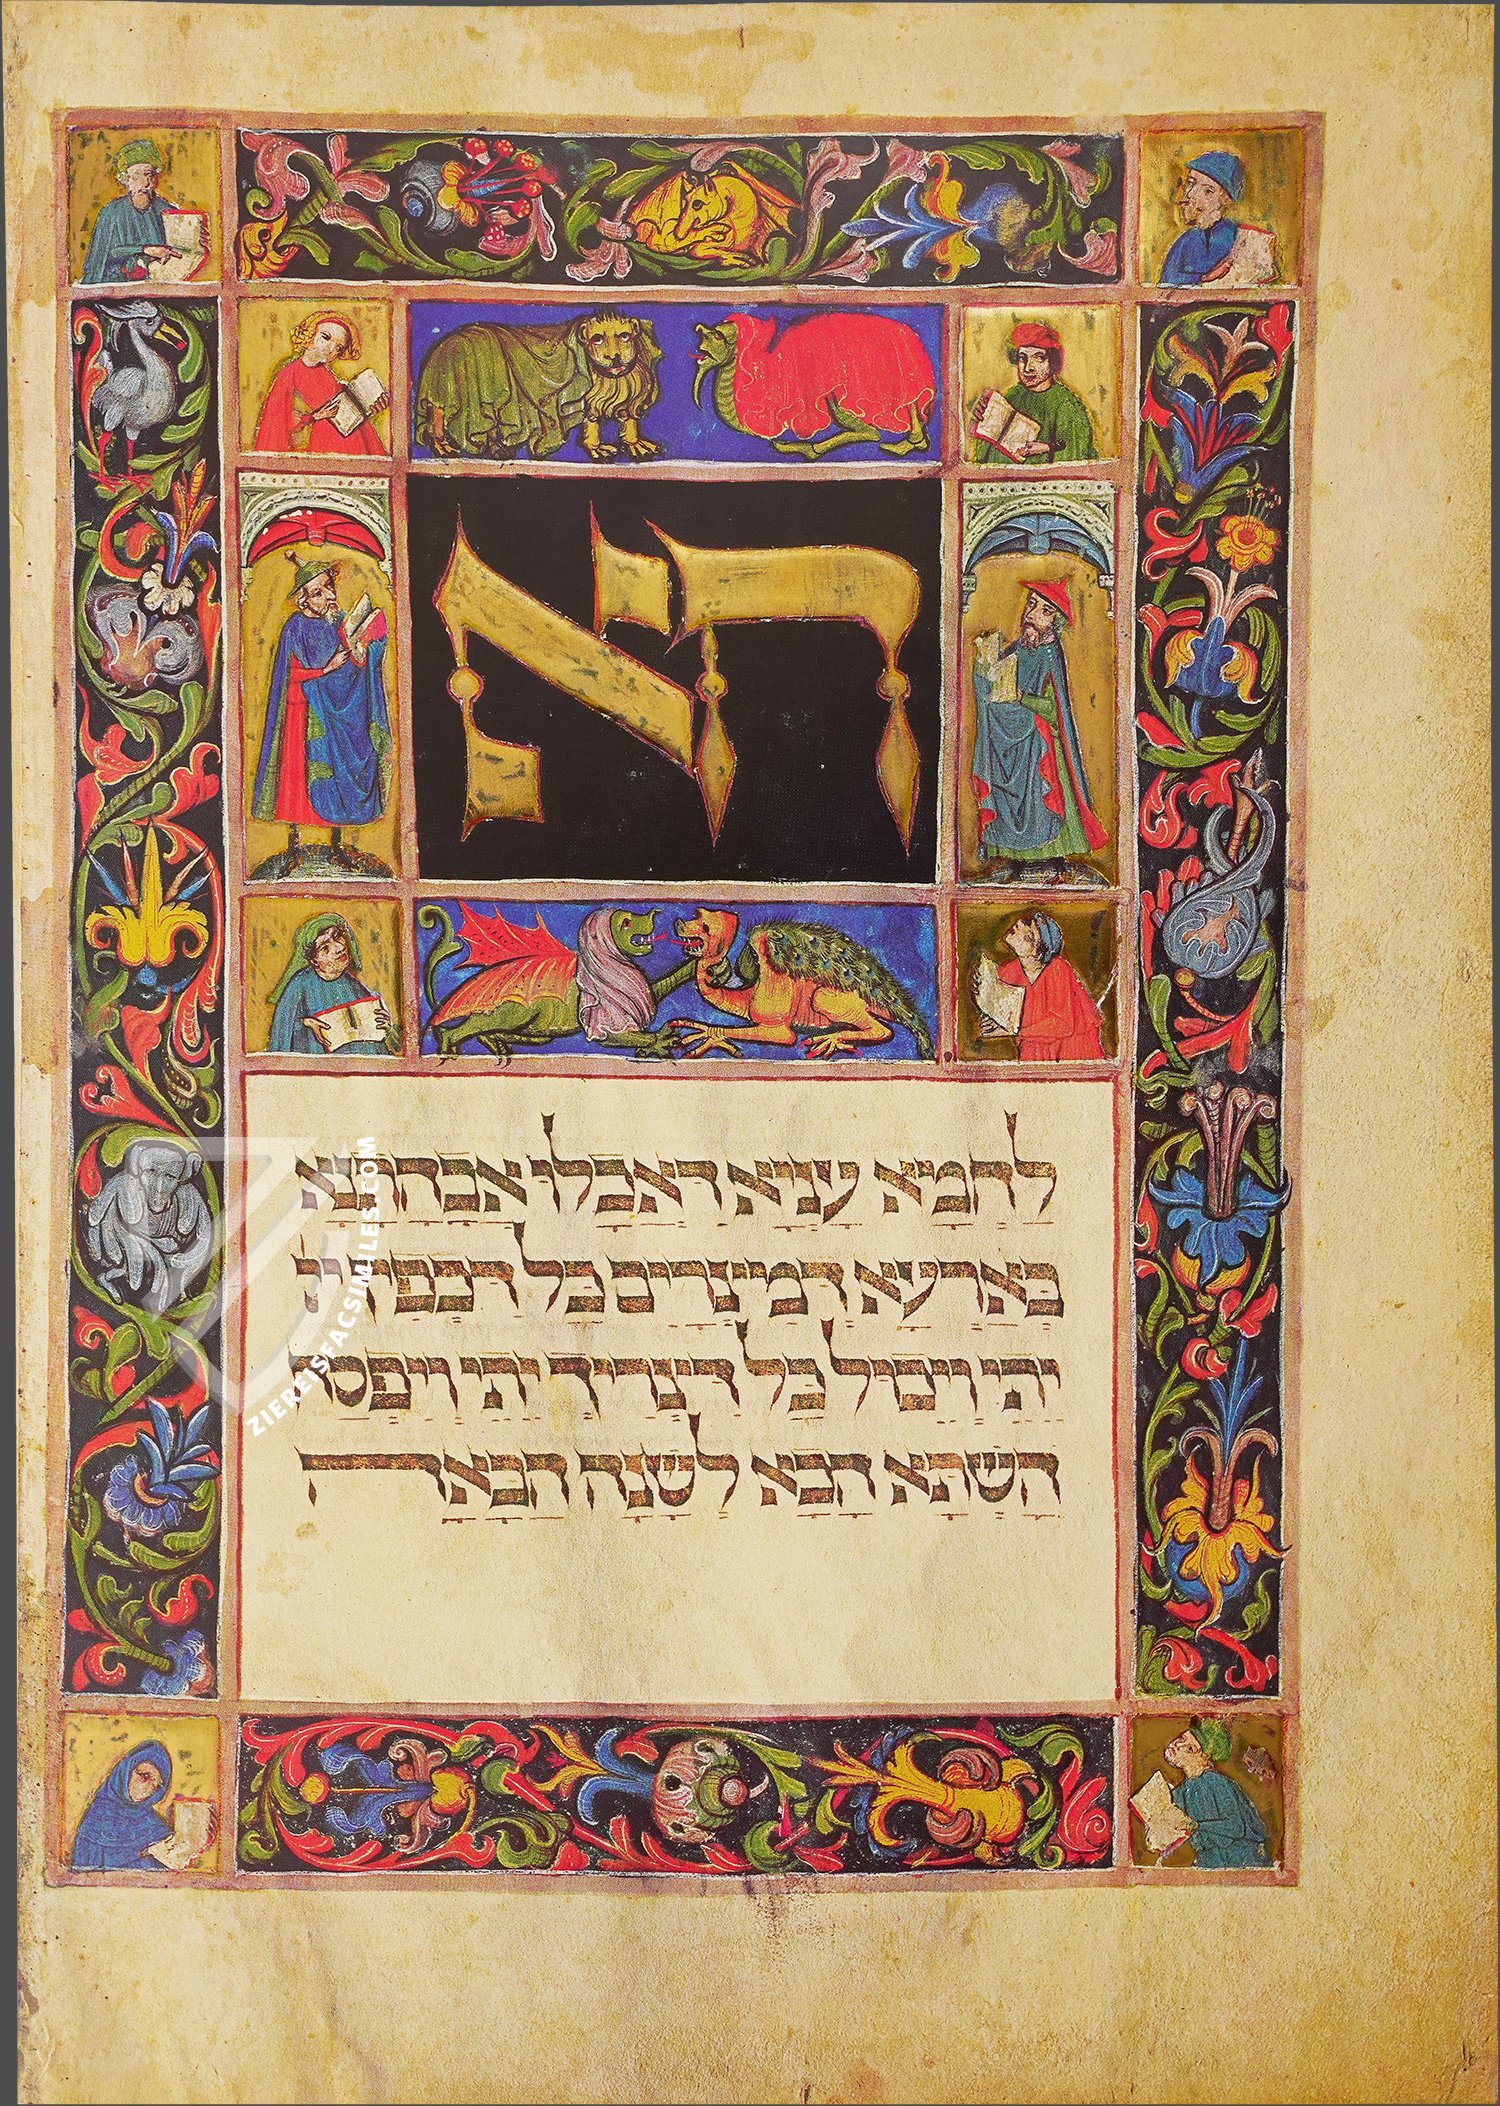 הא
לחמא עניא דאכלו אבהתנא
בארעא דמיצרים כל דכפין יי
יתי ויכול כל דצריך יתי ויפסח
השתא הכא לשנה הבאה
ZIEREISFACSIMILES.COM